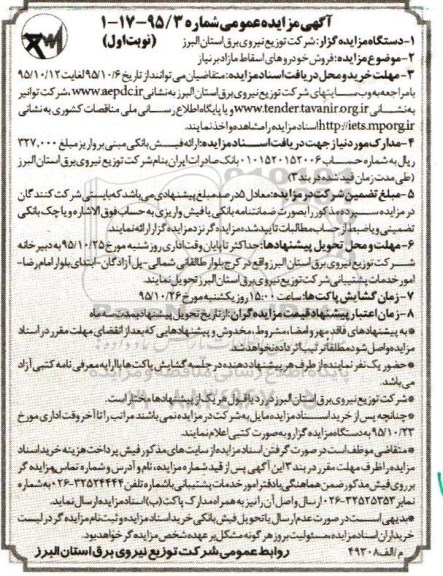 آگهی مزایده عمومی شماره ۹۵/۳-۱۷-۱
(نوبت اول)
۱-دستگاه مزایده گزار: شرکت توزیع نیروی برق استان البرز
۲-موضوع مزایده: فروش خودروهای اسقاط مازاد بر نیاز
۳-مهلت خرید و محل دریافت اسناد مزایده: متقاضیان می توانند از تاریخ ۹۵/۱۰/۶ لغایت ۹۵/۱۰/۱۲
با مراجعه به وب سایتهای شرکت توزیع نیروی برق استان البرز به نشانی www.aepdc.ir، شرکت توانیر
به نشانی www.tender.tavanir.org.ir و یا پایگاه اطلاع رسانی ملی مناقصات کشوری به نشانی
http://iets.mporg.ir اسناد مزایده را مشاهده و اخذ نمایند.
۴-مدارک مورد نیاز جهت دریافت اسناد مزایده: ارائه فیش بانکی مبنی بر واریز مبلغ ۳۲۷,۰۰۰
ریال به شماره حساب ۰۱۰۱۵۲۰۱۵۲۰۰۶ بانک صادرات ایران بنام شرکت توزیع نیروی برق استان البرز
(طی مدت زمان قید شده در بند ۳)
۵-مبلغ تضمین شرکت در مزایده: معادل ۵ درصد مبلغ پیشنهادی می باشد که بایستی شرکت کنندگان
در مزایده سپرده مذکور را بصورت ضمانتنامه بانکی یا فیش واریزی به حساب فوق الاشاره و یا چک بانکی
تضمینی و یا ضبط از حساب مطالبات تایید شده مزایده گر نزد مزایده گزار ارائه نمایند.
۶-مهلت و محل تحویل پیشنهادها: حداکثر تا پایان وقت اداری روز شنبه مورخ ۹۵/۱۰/۲۵ به دبیرخانه
شرکت توزیع نیروی برق استان البرز واقع در کرج-بلوار طالقانی شمالی-پل آزادگان-ابتدای بلوار امام رضا-
امور خدمات پشتیبانی شرکت توزیع نیروی برق استان البرز تحویل نمایند.
۷-زمان گشایش پاکت ها: ساعت ۱۵:۰۰ روز یکشنبه مورخ ۹۵/۱۰/۲۶
۸-زمان اعتبار پیشنهاد قیمت مزایده گران: از تاریخ تحویل پیشنهاد بمدت سه ماه
*به پیشنهادهای فاقد مهر و امضا، مشروط، مخدوش و پیشنهادهایی که بعد از انقضای مهلت مقرر در اسناد
مزایده واصل شود مطلقا ترتیب اثر داده نخواهد شد.
*حضور یک نفر نماینده از طرف هر پیشنهاد دهنده در جلسه گشایش پاکت ها با ارایه معرفی نامه کتبی آزاد
می باشد.
*شرکت توزیع نیروی برق استان البرز در رد یا قبول هر یک از پیشنهادها مختار است.
*چنانچه پس از خرید اسناد مزایده مایل به شرکت در مزایده نمی باشند مراتب را تا آخر وقت اداری مورخ
۹۵/۱۰/۲۳ به دستگاه مزایده گزار و به صورت کتبی اعلام نمایند.
*متقاضی موظف است در صورت گرفتن اسناد مزایده از سایت های مذکور فیش پرداخت هزینه خرید اسناد
مزایده را ظرف مهلت مقرر در بند ۳ این آگهی پس از قید شماره مزایده، نام و آدرس و شماره تماس مزایده گر
بر روی فیش مذکور ضمن هماهنگی با دفتر امور خدمات پشتیبانی با شماره تلفن ۳۲۵۲۴۴۴۴-۰۲۶ به شماره
نمابر ۳۲۵۲۵۳۵۳-۰۲۶ ارسال و اصل آن را نیز به همراه مدارک پاکت (ب) اسناد مزایده ارسال نماید.
*بدیهی است در صورت عدم ارسال یا تحویل فیش بانکی خرید اسناد مزایده و ثبت نام مزایده گر در لیست
خریداران اسناد مزایده، مسئولیت بروز هر گونه مشکل بر عهده شخص مزایده گر خواهد بود.
م/الف ۴۹۳۰۸
روابط عمومی شرکت توزیع نیروی برق استان البرز